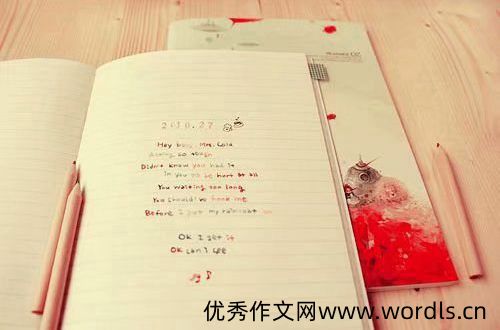 2010.27
Hey boy, Mrs. Cold
Acting so tough
Didn't know you had it
in you to be hurt at all
You waiting too long
You should've hook me
Before I put my raincoat on
OK I get it
OK can I see
优秀作文网www.wordls.cn